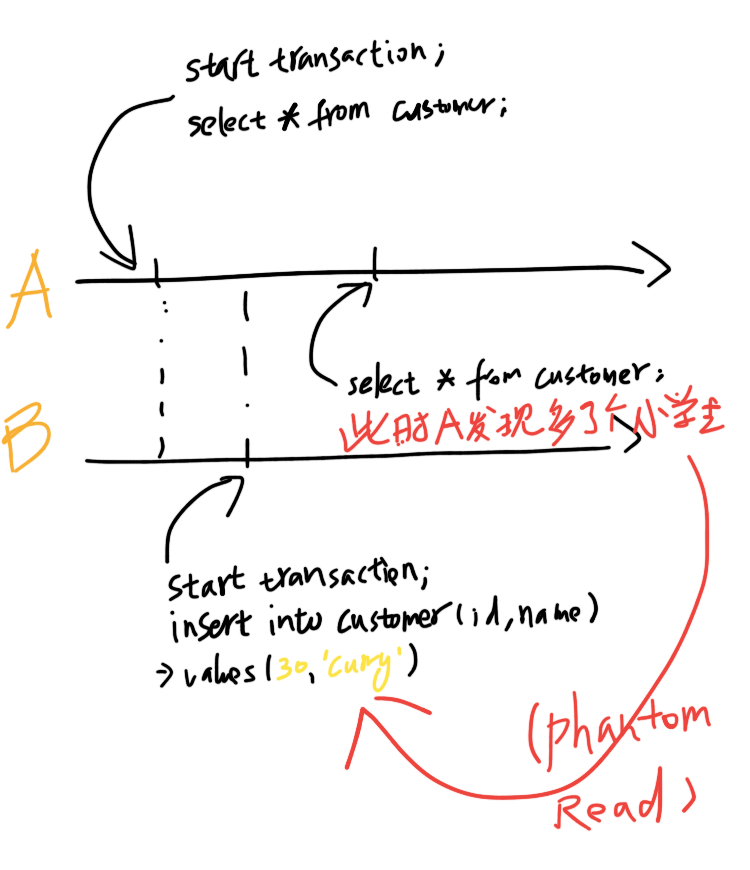 start transaction;
select * from customer;
A
select * from customer;
此时A发现多了个小学生
B
start transaction;
insert into customer(id,name)
→ values(30,'curry')
(phantom
Read)